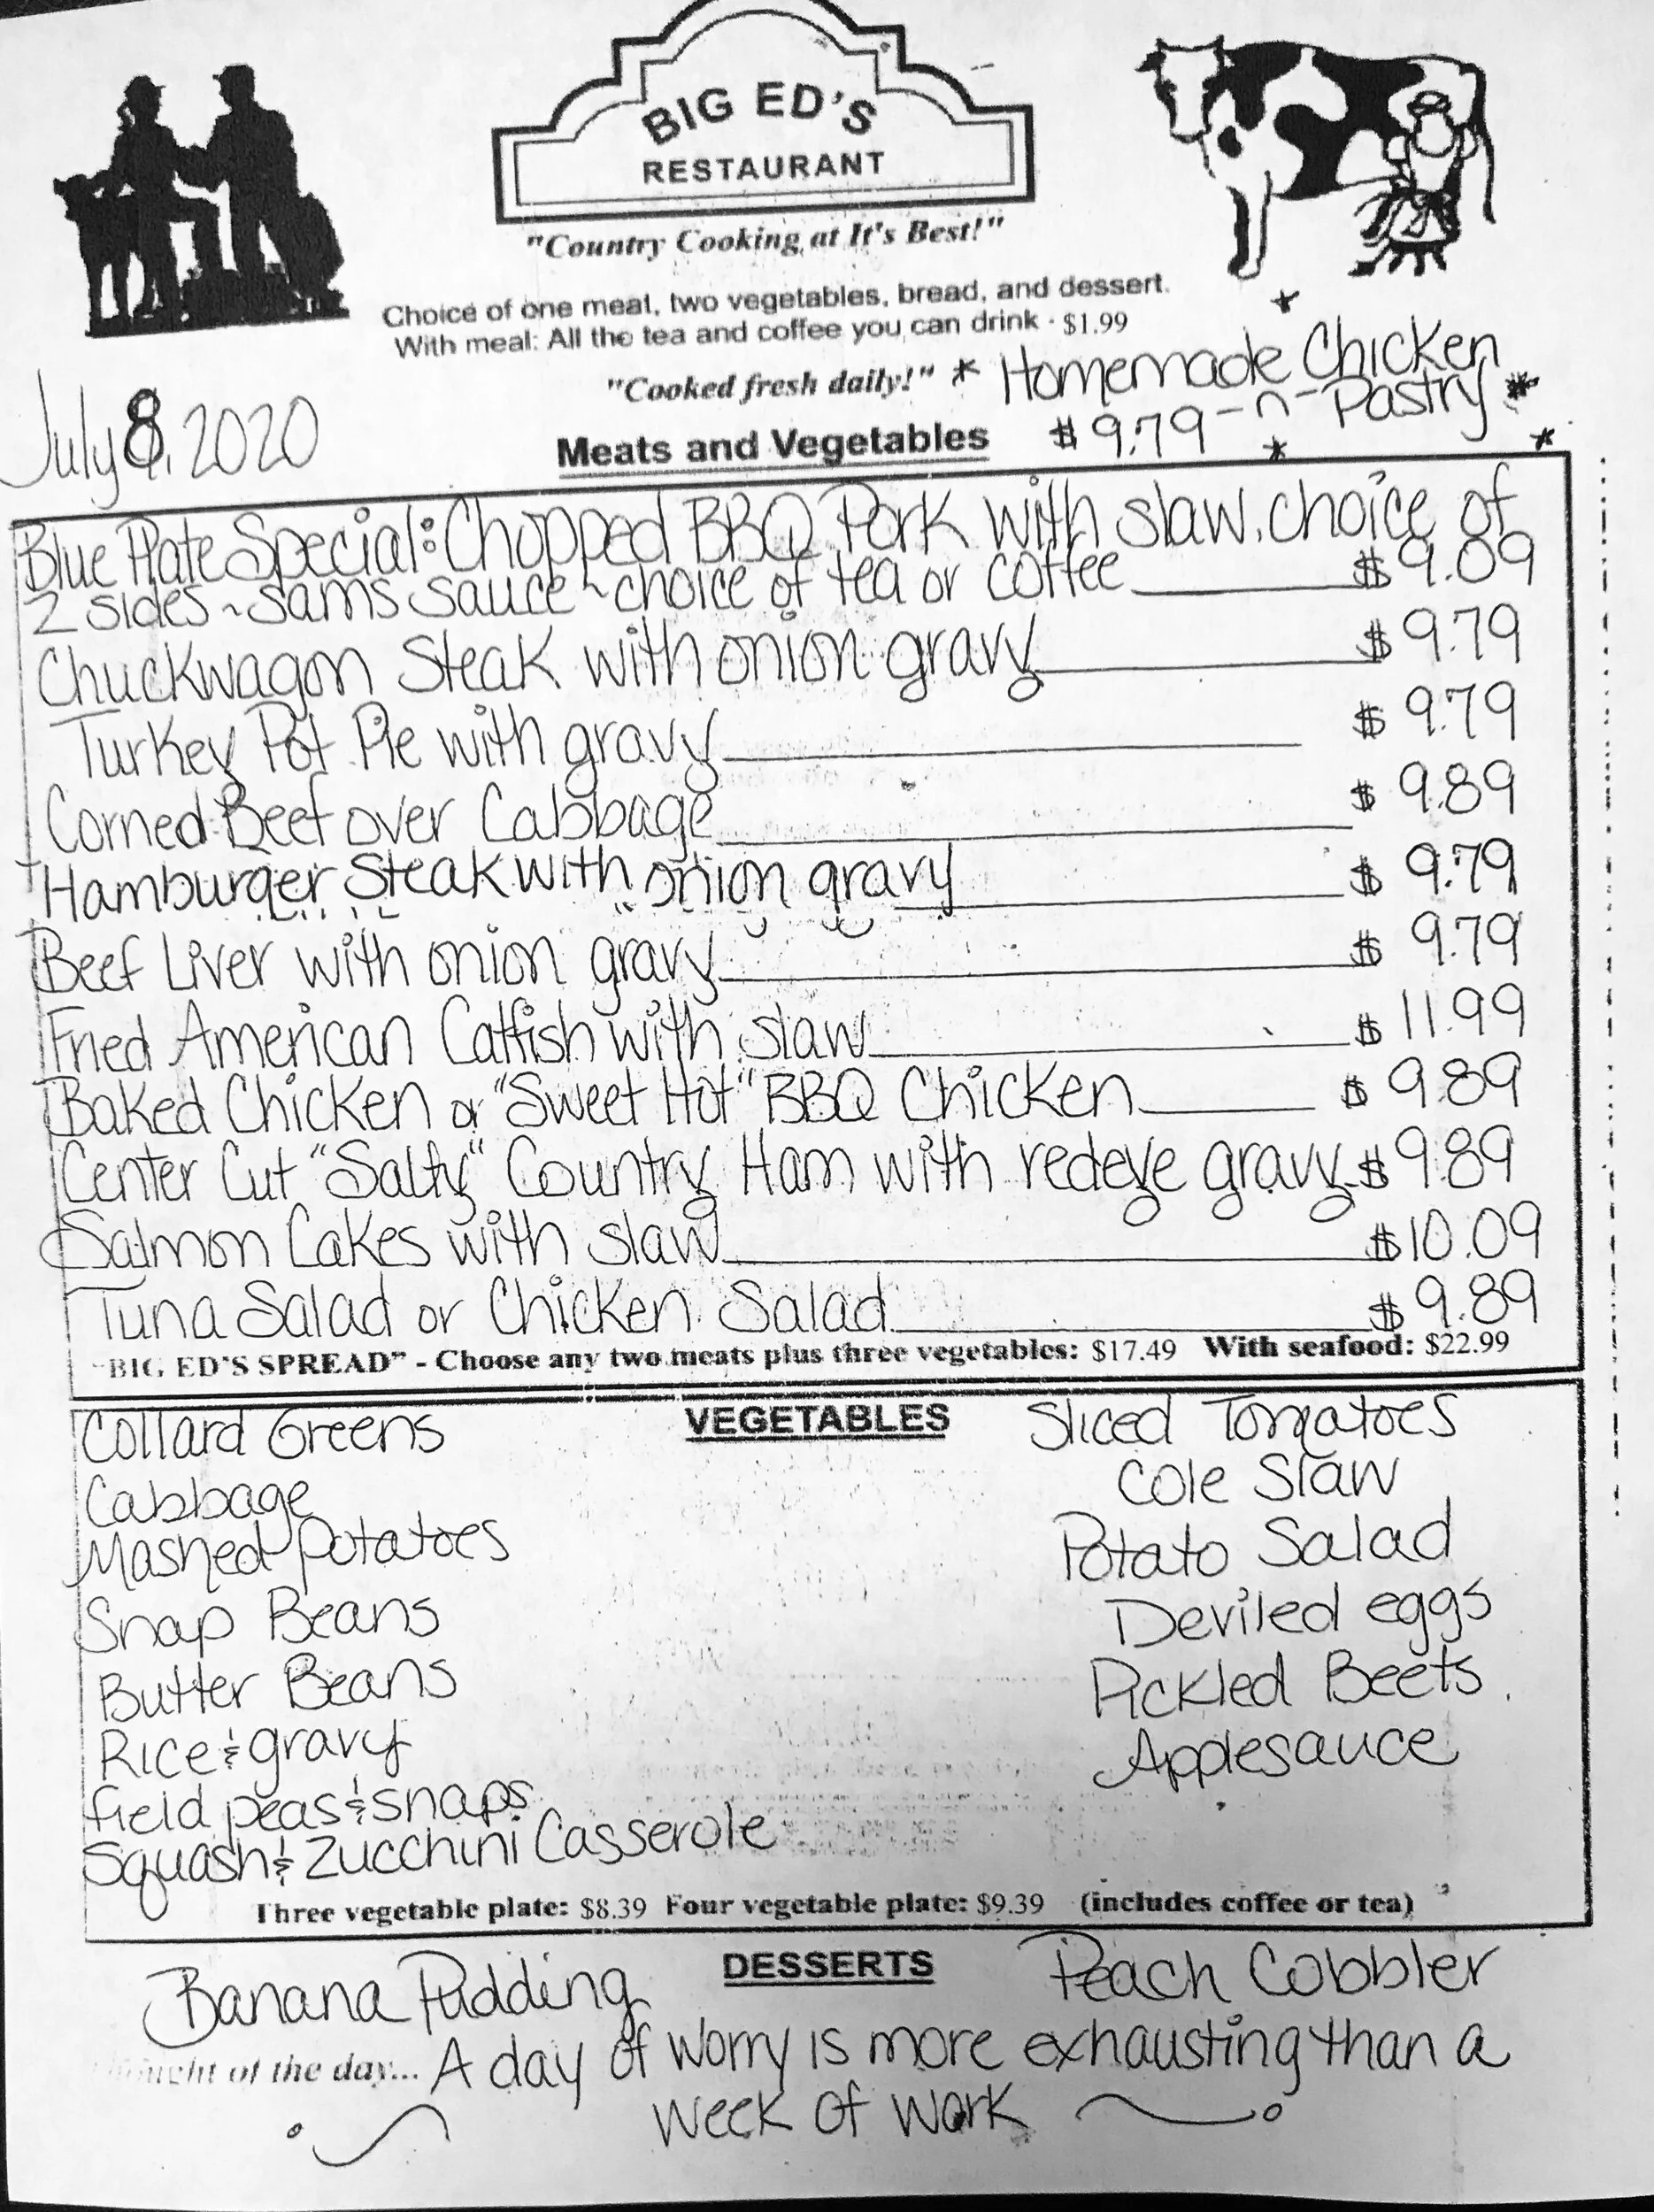 BIG ED'S
RESTAURANT
"Country Cooking at It's Best!"
Choice of one meat, two vegetables, bread, and dessert.
With meal: All the tea and coffee you can drink · $1.99
"Cooked fresh daily!" * Homemade Chicken
$ 9.79 -n- Pastry *
July 8, 2020
Meats and Vegetables
Blue Plate Special: Chopped BBQ Pork with slaw, choice of
2 sides ~ sams sauce ~ choice of tea or coffee $ 9.09
Chuckwagon Steak with onion gravy $ 9.79
Turkey Pot Pie with gravy $ 9.79
Corned Beef over Cabbage $ 9.89
Hamburger Steak with onion gravy $ 9.79
Beef Liver with onion gravy $ 9.79
Fried American Catfish with slaw $ 11.99
Baked Chicken or "Sweet Hot" BBQ Chicken $ 9.89
Center Cut "Salty" Country Ham with redeye gravy $ 9.89
Salmon Cakes with slaw $10.09
Tuna Salad or Chicken Salad $ 9.89
"BIG ED'S SPREAD" - Choose any two meats plus three vegetables: $17.49 With seafood: $22.99
VEGETABLES
Collard Greens
Cabbage
Mashed Potatoes
Snap Beans
Butter Beans
Rice & gravy
field peas & snaps
Squash & Zucchini Casserole
Sliced Tomatoes
Cole Slaw
Potato Salad
Deviled eggs
Pickled Beets
Applesauce
Three vegetable plate: $8.39 Four vegetable plate: $9.39 (includes coffee or tea)
DESSERTS
Banana Pudding
Peach Cobbler
of the day... A day of worry is more exhausting than a
week of work